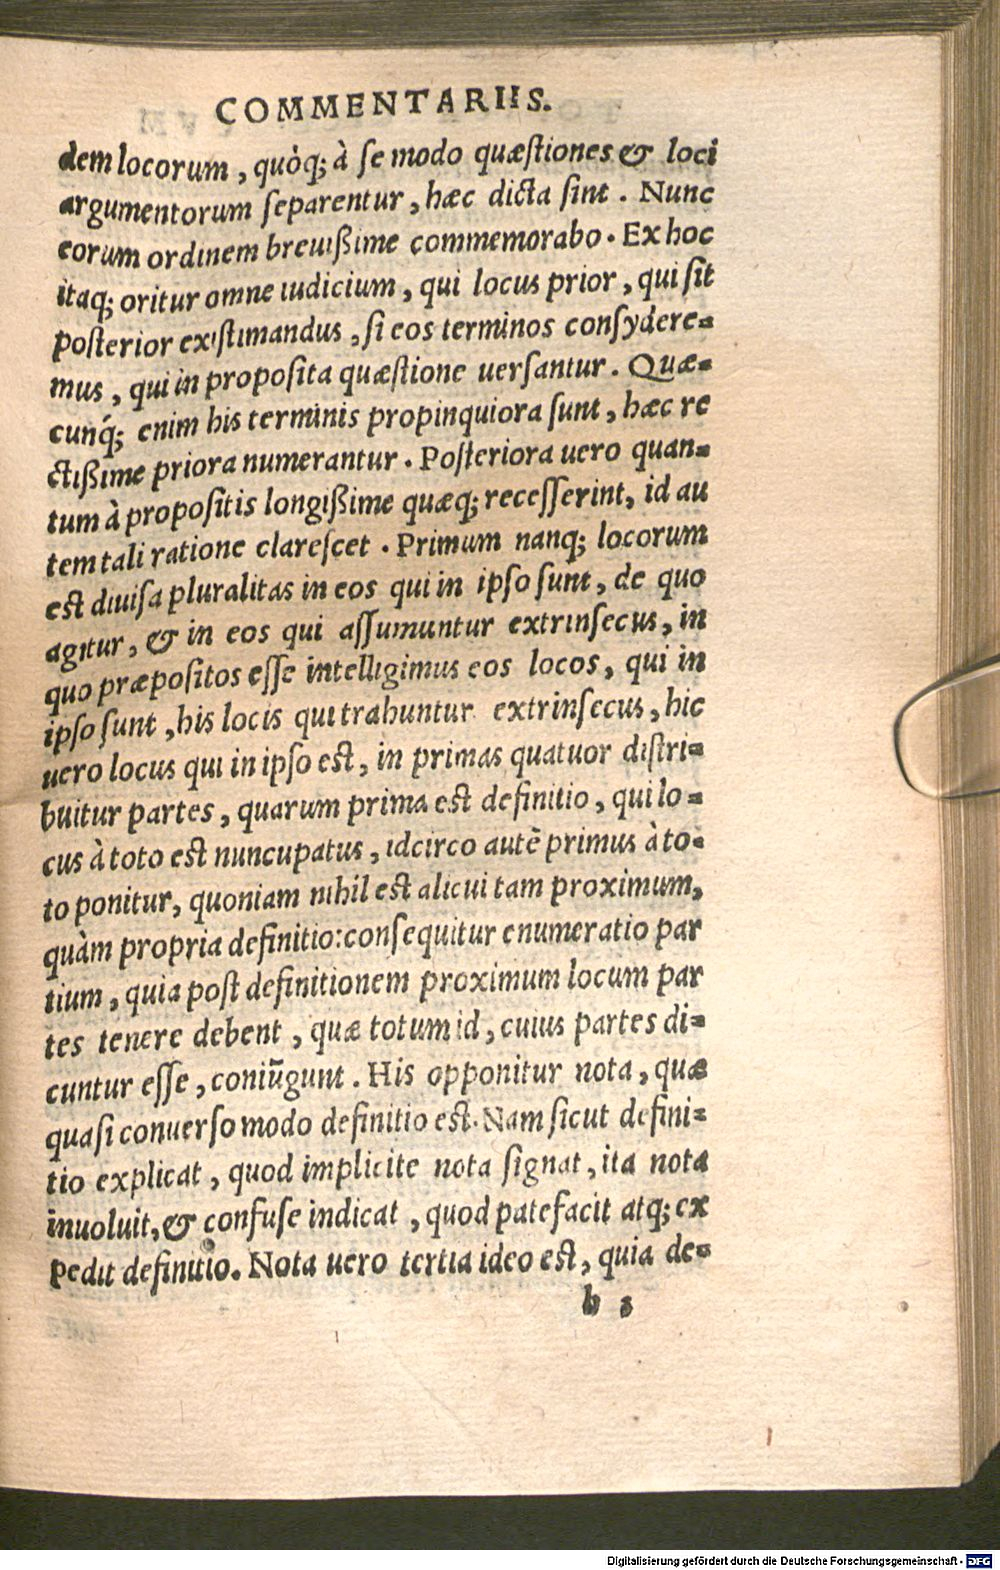 COMMENTARIIS.
dem locorum, quòq; à se modo quæstiones & loci
argumentorum separentur, hæc dicta sint. Nunc
eorum ordinem breuißime commemorabo. Ex hoc
itaq; oritur omne iudicium, qui locus prior, qui sit
posterior existimandus, si eos terminos consydere=
mus, qui in proposita quæstione uersantur. Quæ=
cunq́; enim his terminis propinquiora sunt, hæc re
ctißime priora numerantur. Posteriora uero quan=
tum à propositis longißime quæq; recesserint, id au
tem tali ratione clarescet. Primum nanq; locorum
est diuisa pluralitas in eos qui in ipso sunt, de quo
agitur, & in eos qui assumuntur extrinsecus, in
quo præpositos esse intelligimus eos locos, qui in
ipso sunt, his locis qui trahuntur extrinsecus, hic
uero locus qui in ipso est, in primas quatuor distri=
buitur partes, quarum prima est definitio, qui lo=
cus à toto est nuncupatus, idcirco autē primus à to=
to ponitur, quoniam nihil est alicui tam proximum,
quàm propria definitio: consequitur enumeratio par
tium, quia post definitionem proximum locum par
tes tenere debent, quæ totum id, cuius partes di=
cuntur esse, coniūgunt. His opponitur nota, quæ
quasi conuerso modo definitio est. Nam sicut defini=
tio explicat, quod implicite nota signat, ita nota
inuoluit, & confuse indicat, quod patefacit atq; ex
pedit definitio. Nota uero tertia ideo est, quia de=
b 3
Digitalisierung gefördert durch die Deutsche Forschungsgemeinschaft - DFG